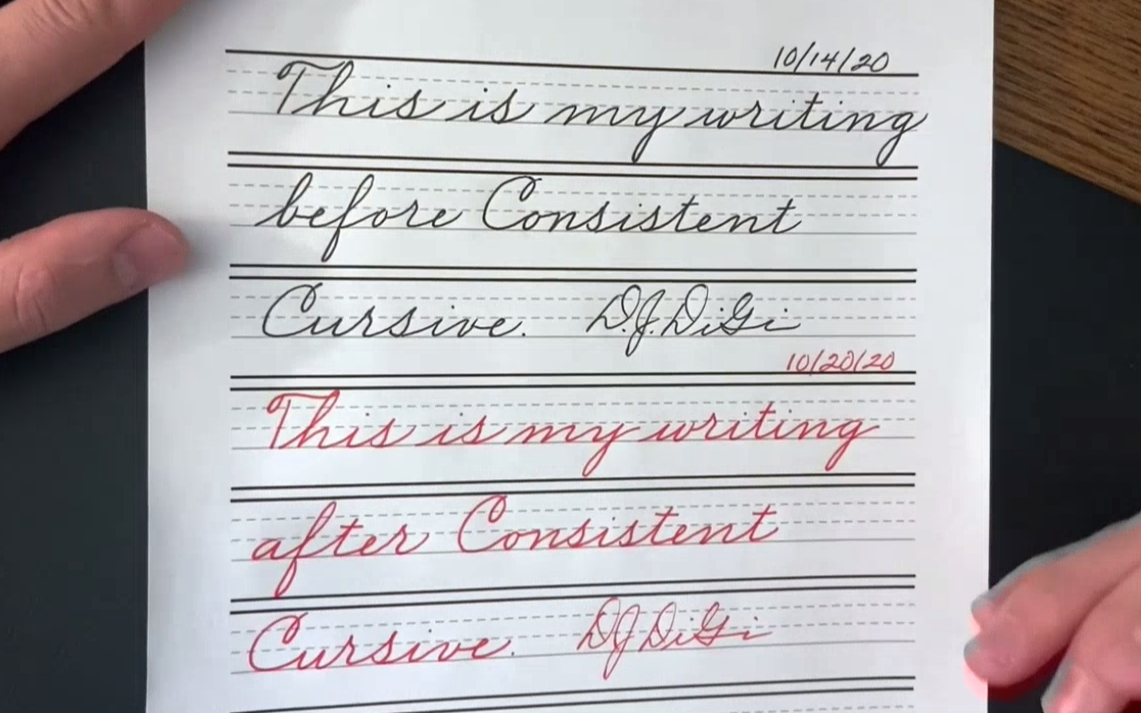 10/14/20
This is my writing
before Consistent
Cursive. D.J. DiGi
10/20/20
This is my writing
after Consistent
Cursive. DJ DiGi